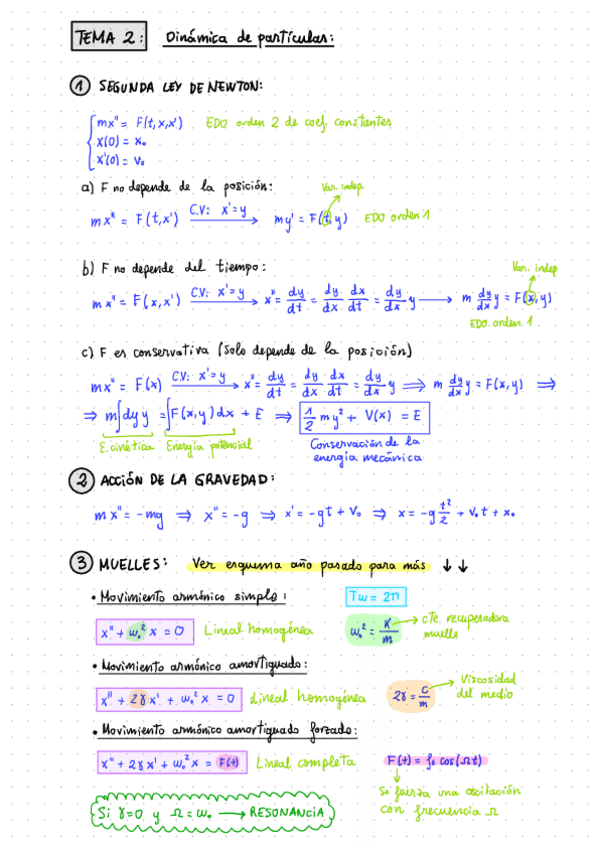 TEMA 2: Dinámica de partículas:
① SEGUNDA LEY DE NEWTON:
mx'' = F(t,x,x') EDO orden 2 de coef. constantes
x(0) = x₀
x'(0) = v₀
a) F no depende de la posición: Var. indep
mx'' = F(t,x') C.V: x'=y → my' = F(t,y) EDO orden 1
b) F no depende del tiempo: Var. indep
mx'' = F(x,x') C.V: x'=y → x'' = dy/dt = dy/dx dx/dt = dy/dx y → m dy/dx y = F(x,y)
EDO orden 1
c) F es conservativa (solo depende de la posición)
mx'' = F(x) C.V: x'=y → x'' = dy/dt = dy/dx dx/dt = dy/dx y ⇒ m dy/dx y = F(x,y) ⇒
⇒ m∫dy y = ∫F(x,y)dx + E ⇒ 1/2 my² + V(x) = E
E. cinética Energía potencial Conservación de la
energía mecánica
② ACCIÓN DE LA GRAVEDAD:
mx'' = -mg ⇒ x'' = -g ⇒ x' = -gt + v₀ ⇒ x = -g t²/2 + v₀t + x₀
③ MUELLES: Ver esquema año pasado para más ↓↓
• Movimiento armónico simple: Tw = 2π
x'' + w₀² x = 0 Lineal homogénea w₀² = K/m → cte. recuperadora
muelle
• Movimiento armónico amortiguado:
x'' + 2γx' + w₀² x = 0 Lineal homogénea 2γ = c/m → Viscosidad
del medio
• Movimiento armónico amortiguado forzado:
x'' + 2γx' + w₀² x = F(t) Lineal completa F(t) = f₀ cos(Ωt)
Se fuerza una oscilación
con frecuencia Ω
Si γ=0 y Ω = w₀ → RESONANCIA